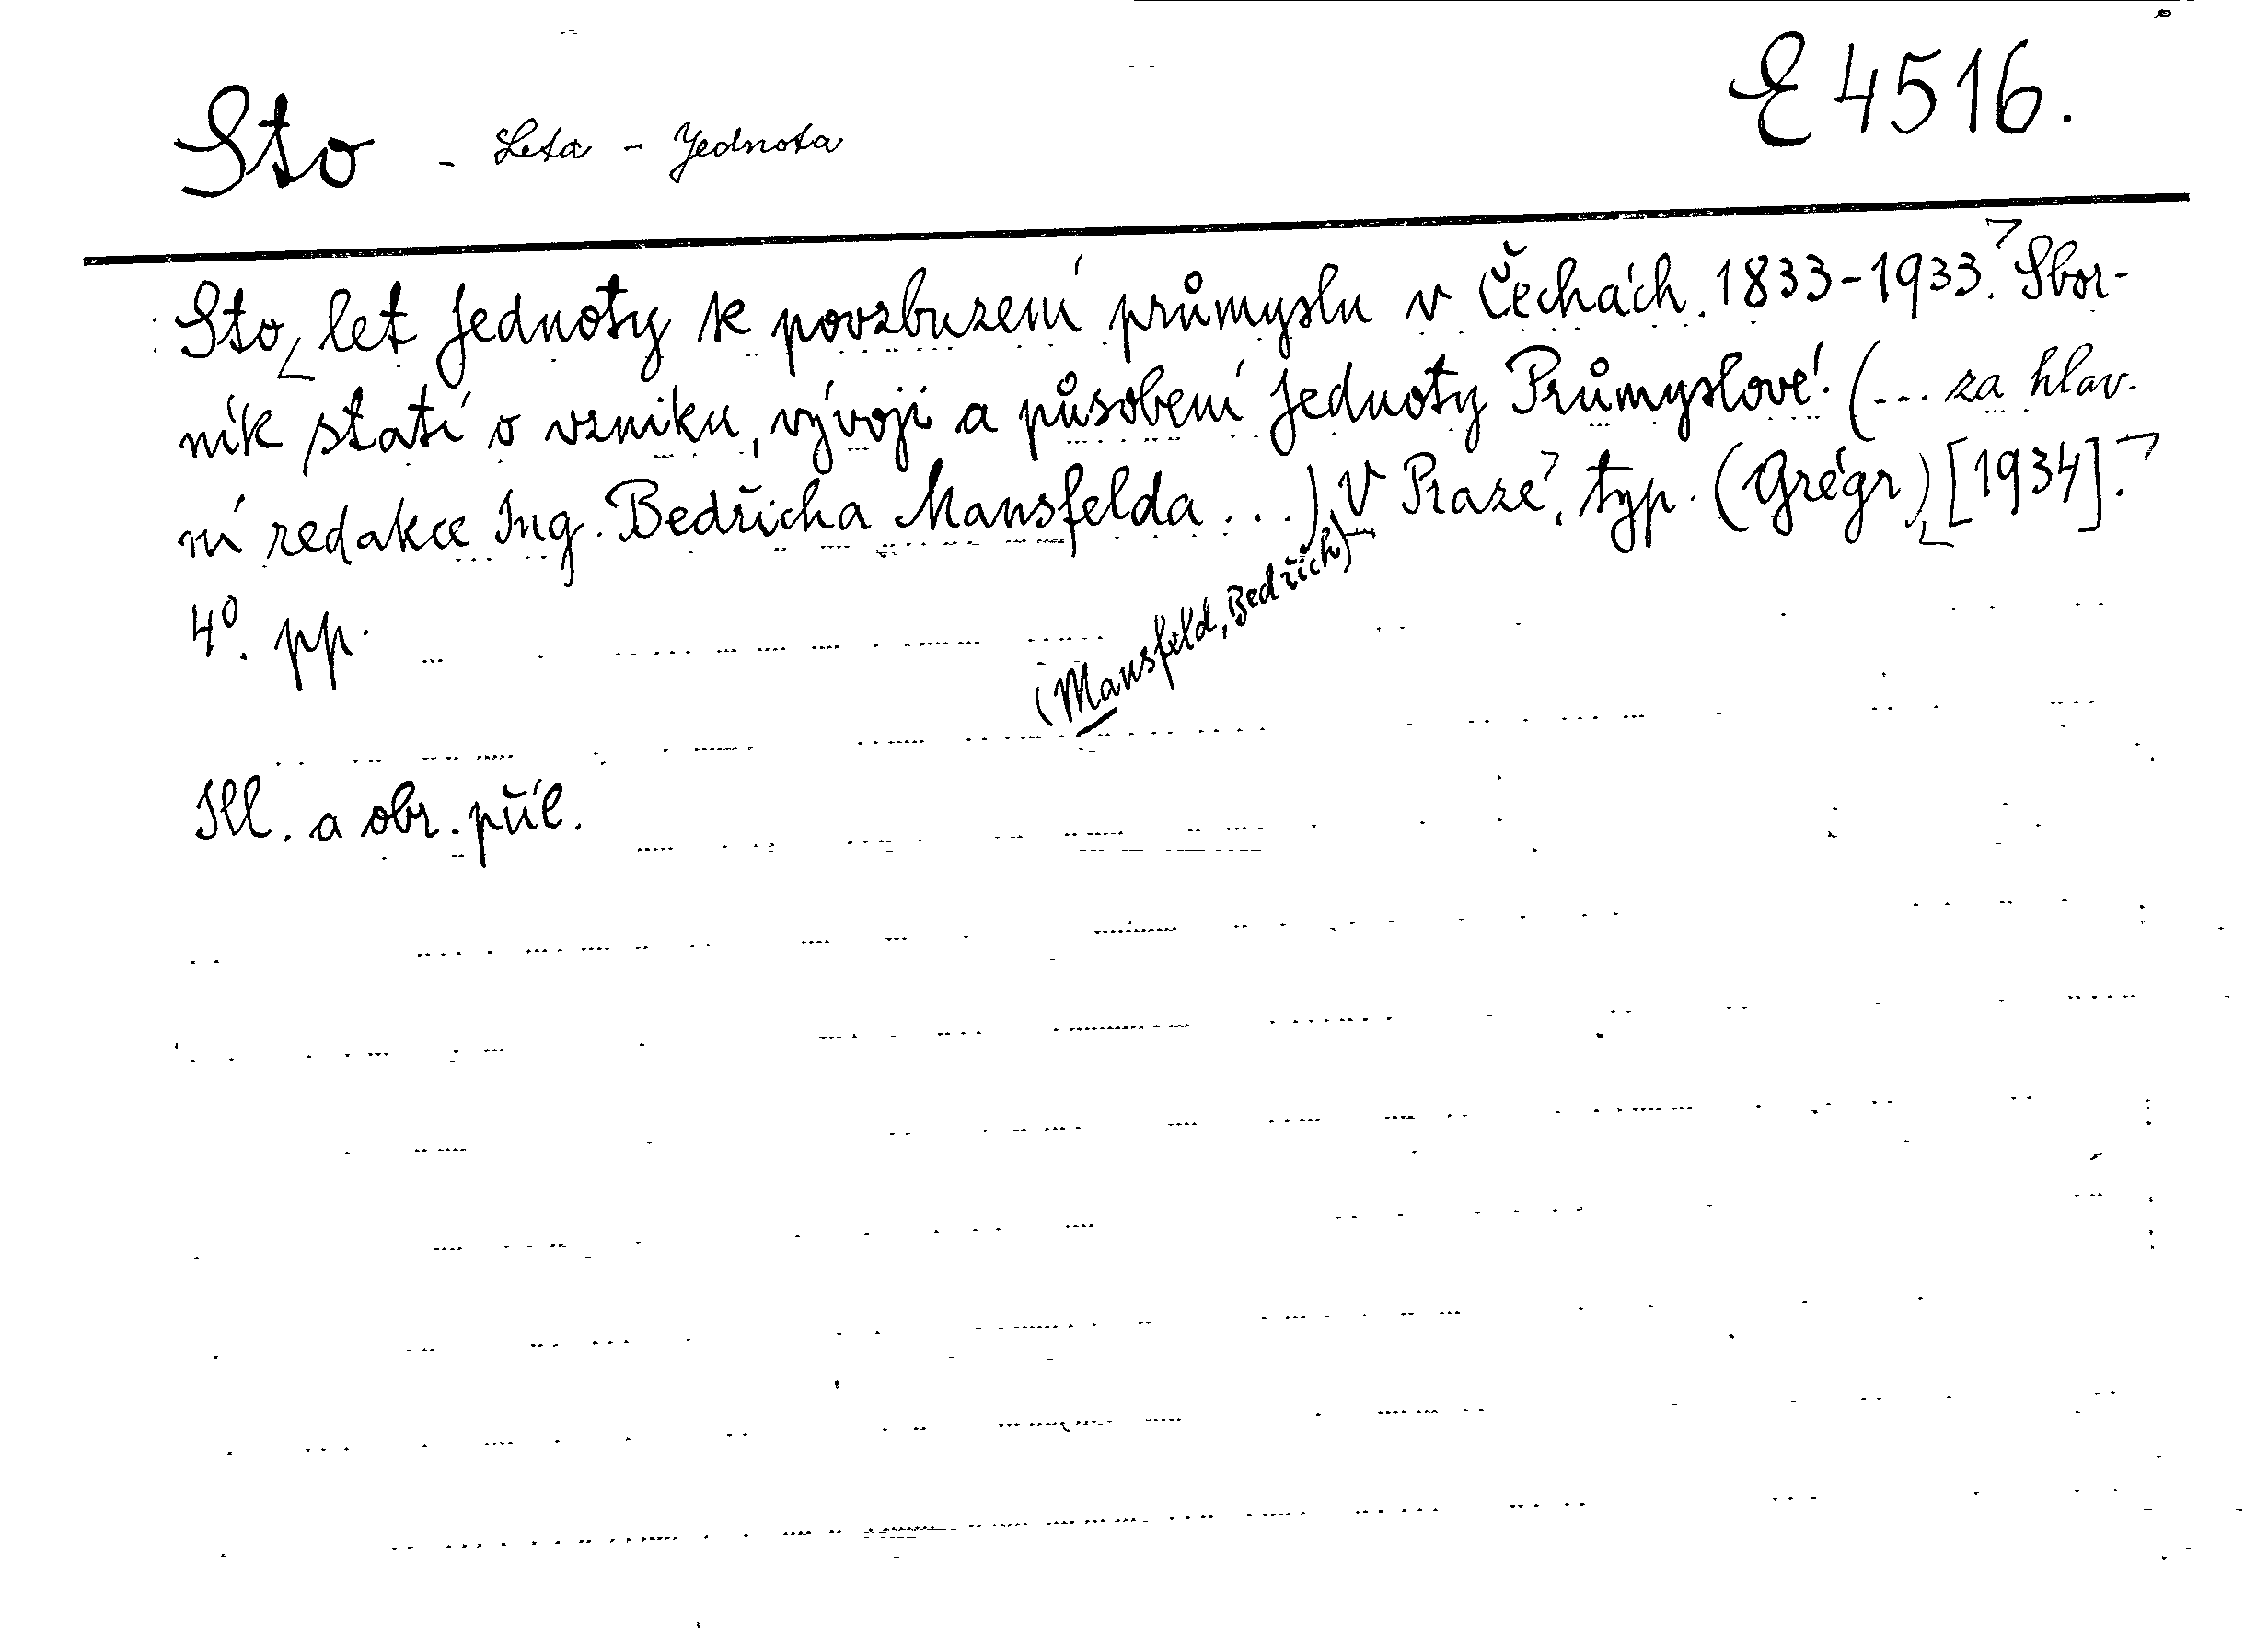 Sto - Leta - Jednota E 4516.
Sto let Jednoty k povzbuzení průmyslu v Čechách. 1833-1933. Sbor-
ník statí o vzniku, vývoji a působení Jednoty Průmyslové. (... za hlav-
ní redakce Ing. Bedřicha Mansfelda ...) V Praze, typ. (Grégr) [1934].
(Mansfeld, Bedřich)
4°. pp.
Ill. a obr. příl.